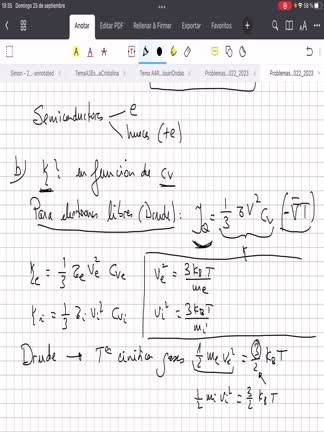 19:35 Domingo 25 de septiembre
58 %
Anotar Editar PDF Rellenar & Firmar Exportar Favoritos
Simon - 2...-annotated
TemaA3Es...aCristalina
Tema A4R...loulnOndas
Problemas...022_2023
Problemas...022_2023
Semiconductores → e
huecos (+e)
b) K? en función de cv
Para electrones libres (Drude): J_Q = 1/3 τ V² c_v (-∇T)
K
K_e = 1/3 τ_e v_e² C_{Ve}
v_e² = 3k_BT/m_e
K_i = 1/3 τ_i v_i² C_{Vi}
v_i² = 3k_BT/m_i
Drude → Tª cinética gases 1/2 m_e v_e² = 3/2 k_BT
1/2 m_i v_i² = 3/2 k_BT